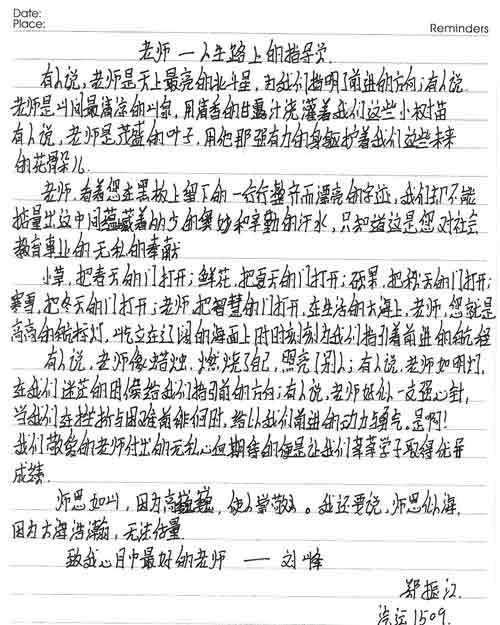 Date:
Place:
Reminders
老师一人生路上的指导员.
有人说,老师是天上最亮的北斗星,为我们指明了前进的方向;有人说.
老师是山间最清凉的山泉,用清香的甘露汁浇灌着我们这些小树苗
有人说,老师是茂盛的叶子,用他那强有力的身躯护着我们这些未来
的花骨朵儿.
老师,看着您在黑板上留下的一行行整齐而漂亮的字迹,我们却不能
掂量出这中间蕴藏着的多少的奥妙和辛勤的汗水,只知道这是您对社会
教育事业的无私的奉献
小草,把春天的门打开;鲜花,把夏天的门打开;硕果,把秋天的门打开;
寒雪,把冬天的门打开;老师,把智慧的门打开,在生活的大海上,老师,您就是
高高的航标灯,屹立在辽阔的海面上时时刻刻为我们指引着前进的航程
有人说,老师像蜡烛,燃烧了自己,照亮了别人;有人说,老师如明灯,
在我们迷茫的时候给我们指引前的方向;有人说,老师好似一支强心针,
当我们在挫折与困难前徘徊时,给以我们前进的动力与勇气。是啊!
我们敬爱的老师付出的无私心但期待的便是让我们莘莘学子取得优异
成绩.
师恩如山,因为高巍巍,使人崇敬。我还要说,师恩似海,
因为大海浩瀚,无法估量.
致我心目中最好的老师 —— 刘峰
郑振江.
汽运1509.